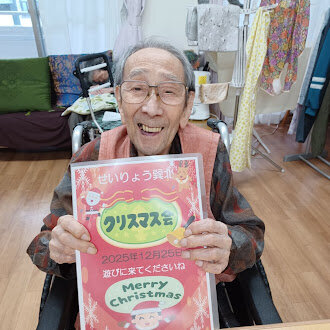 せいりょう巽北
クリスマス会
2025年12月25
遊びに来てくださいね
Merry
Christmas